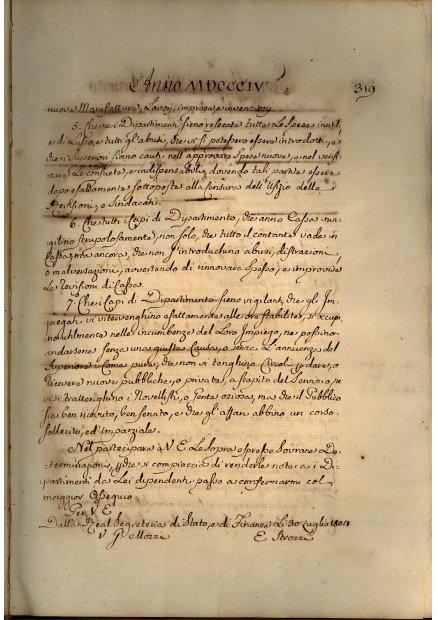 Anno MDCCCIV.
319
nuove Manifatture, Lavori, imprese, e invenzioni
5. Che nei Dipartimenti sieno resecate tutte le Spese inutili,
e di Lusso, e tutti gl'abusi, che vi si potessero essere introdotti, e
che i Superiori siano cauti nell'approvare Spese nuove, e nel verifi-
care le consuete, e indispensabili, dovendo tali partite essere
dopo esattamente sottoposte alla Censura dell'Ufizio delle
Revisioni, e Sindacati.
6. Che tutti i Capi di Dipartimento, che anno Cassa in-
vigilino scrupolosamente, non solo, che tutto il contante vada in
Cassa, ma ancora, che non s'introduchino abusi, distrazioni,
o malversazioni, avvertendo di rinnovare spesso, e improvise
le revisioni di Cassa.
7. Che i Capi di Dipartimento sieno vigilanti, che gli Im-
piegati vi intervenghino esattamente alle ore stabilite, si occupi-
no utilmente nelle incumbenze del Loro Impiego, ne possino
andarsene senza una giusta Causa, e senza l'annuenza del
Superiore: Come pure, che non si tenghino Circoli per dare, o
ricevere nuove pubbliche, o private, a scapito del Servizio, ne
vi si trattenghino i Novellisti, o Gente oziosa, ma che il Pubblico
sia ben ricevuto, ben servito, e che gl'affari abbino un corso
sollecito, ed imparziale.
Nel partecipare a V. E. le sopra espresse Sovrane De-
terminazioni, perche si compiaccia di renderle note ai Di-
partimenti da Lei dipendenti passo a confermarmi col
maggior Ossequio
Per V. E.
Dalla Real Segreteria di Stato, e di Finanze li 30 Luglio 1804
V. G. Mozzi E. Strozzi